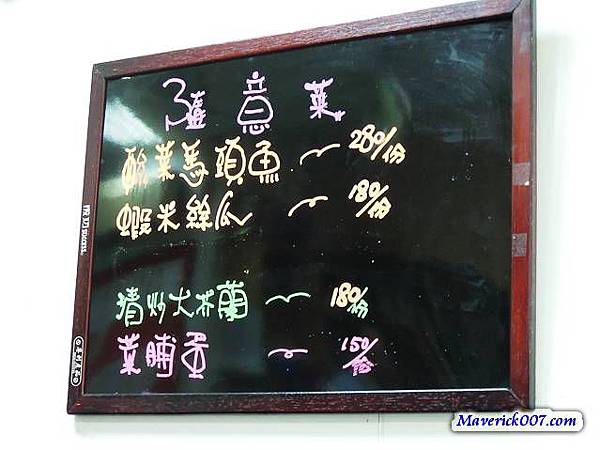 隨意菜
酸菜馬頭魚 ~ 280/份
蝦米絲瓜 ~ 180/份
清炒大芥蘭 ~ 180/份
菜脯蛋 ~ 150/份
Maverick007.com